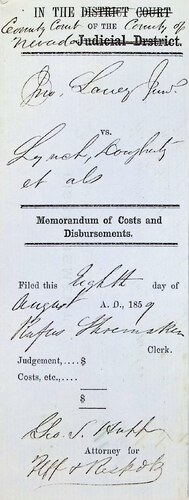 IN THE DISTRICT COURT
County Court OF THE County of
Nevada Judicial District.
Jno. Lancy Junr.
vs.
Lynch, Dougherty
et als
Memorandum of Costs and
Disbursements.
Filed this Eighth day of
August A. D., 1859
Rufus Shoemaker
Clerk.
Judgement,....$
Costs, etc.,....
$
Geo. S. Hupp
Attorney for
Plff